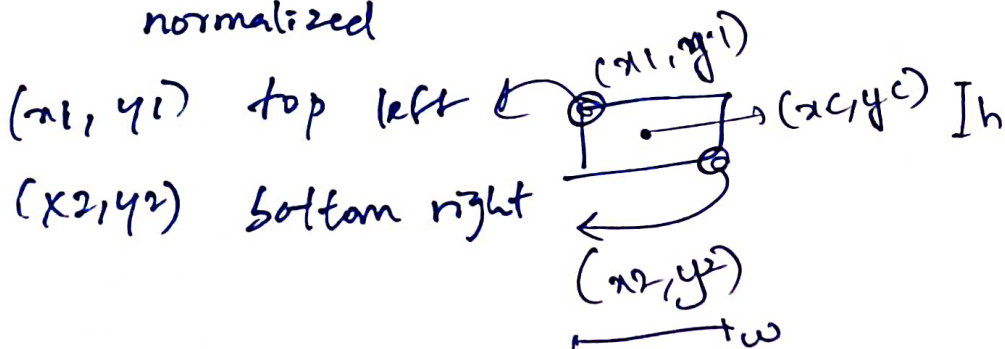 normalized
(x1, y1)
(x1, y1) top left
(xc, yc) h
(x2, y2) bottom right
(x2, y2)
w